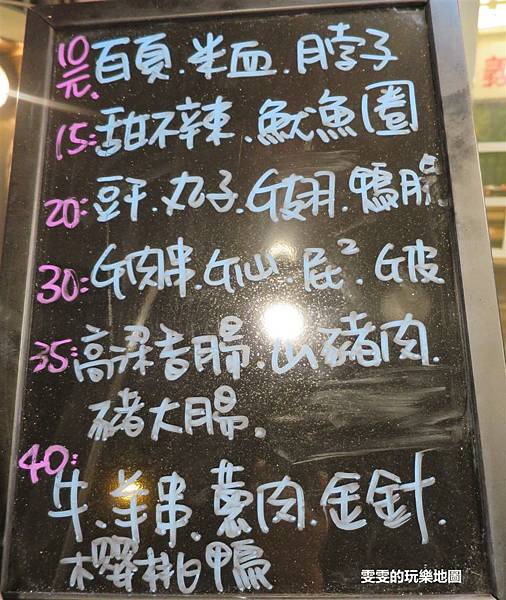 10元. 百頁.米血.月脖子
15:甜不辣.魷魚圈
20:豆干.丸子.G皮肉.鴨腸
30:G肉串.G仙.屁².G皮
35:高梁香腸.山豬肉.
豬大腸.
40:
牛.羊串.蔥肉.金針.
櫻桃鴨
雯雯的玩樂地圖